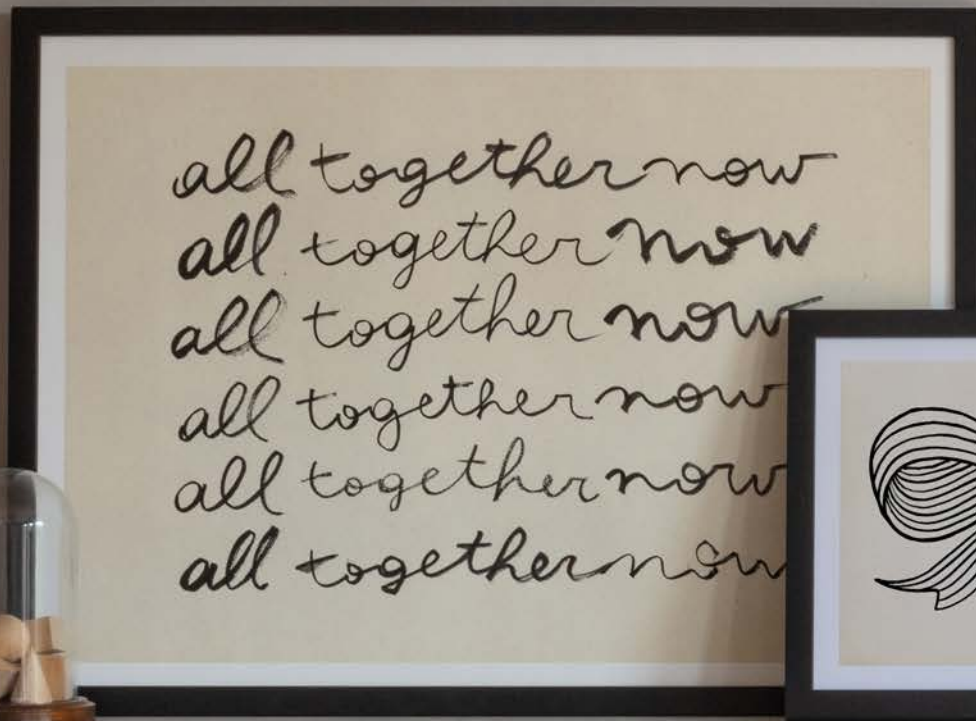 all together now
all together now
all together now
all together now
all together now
all together now